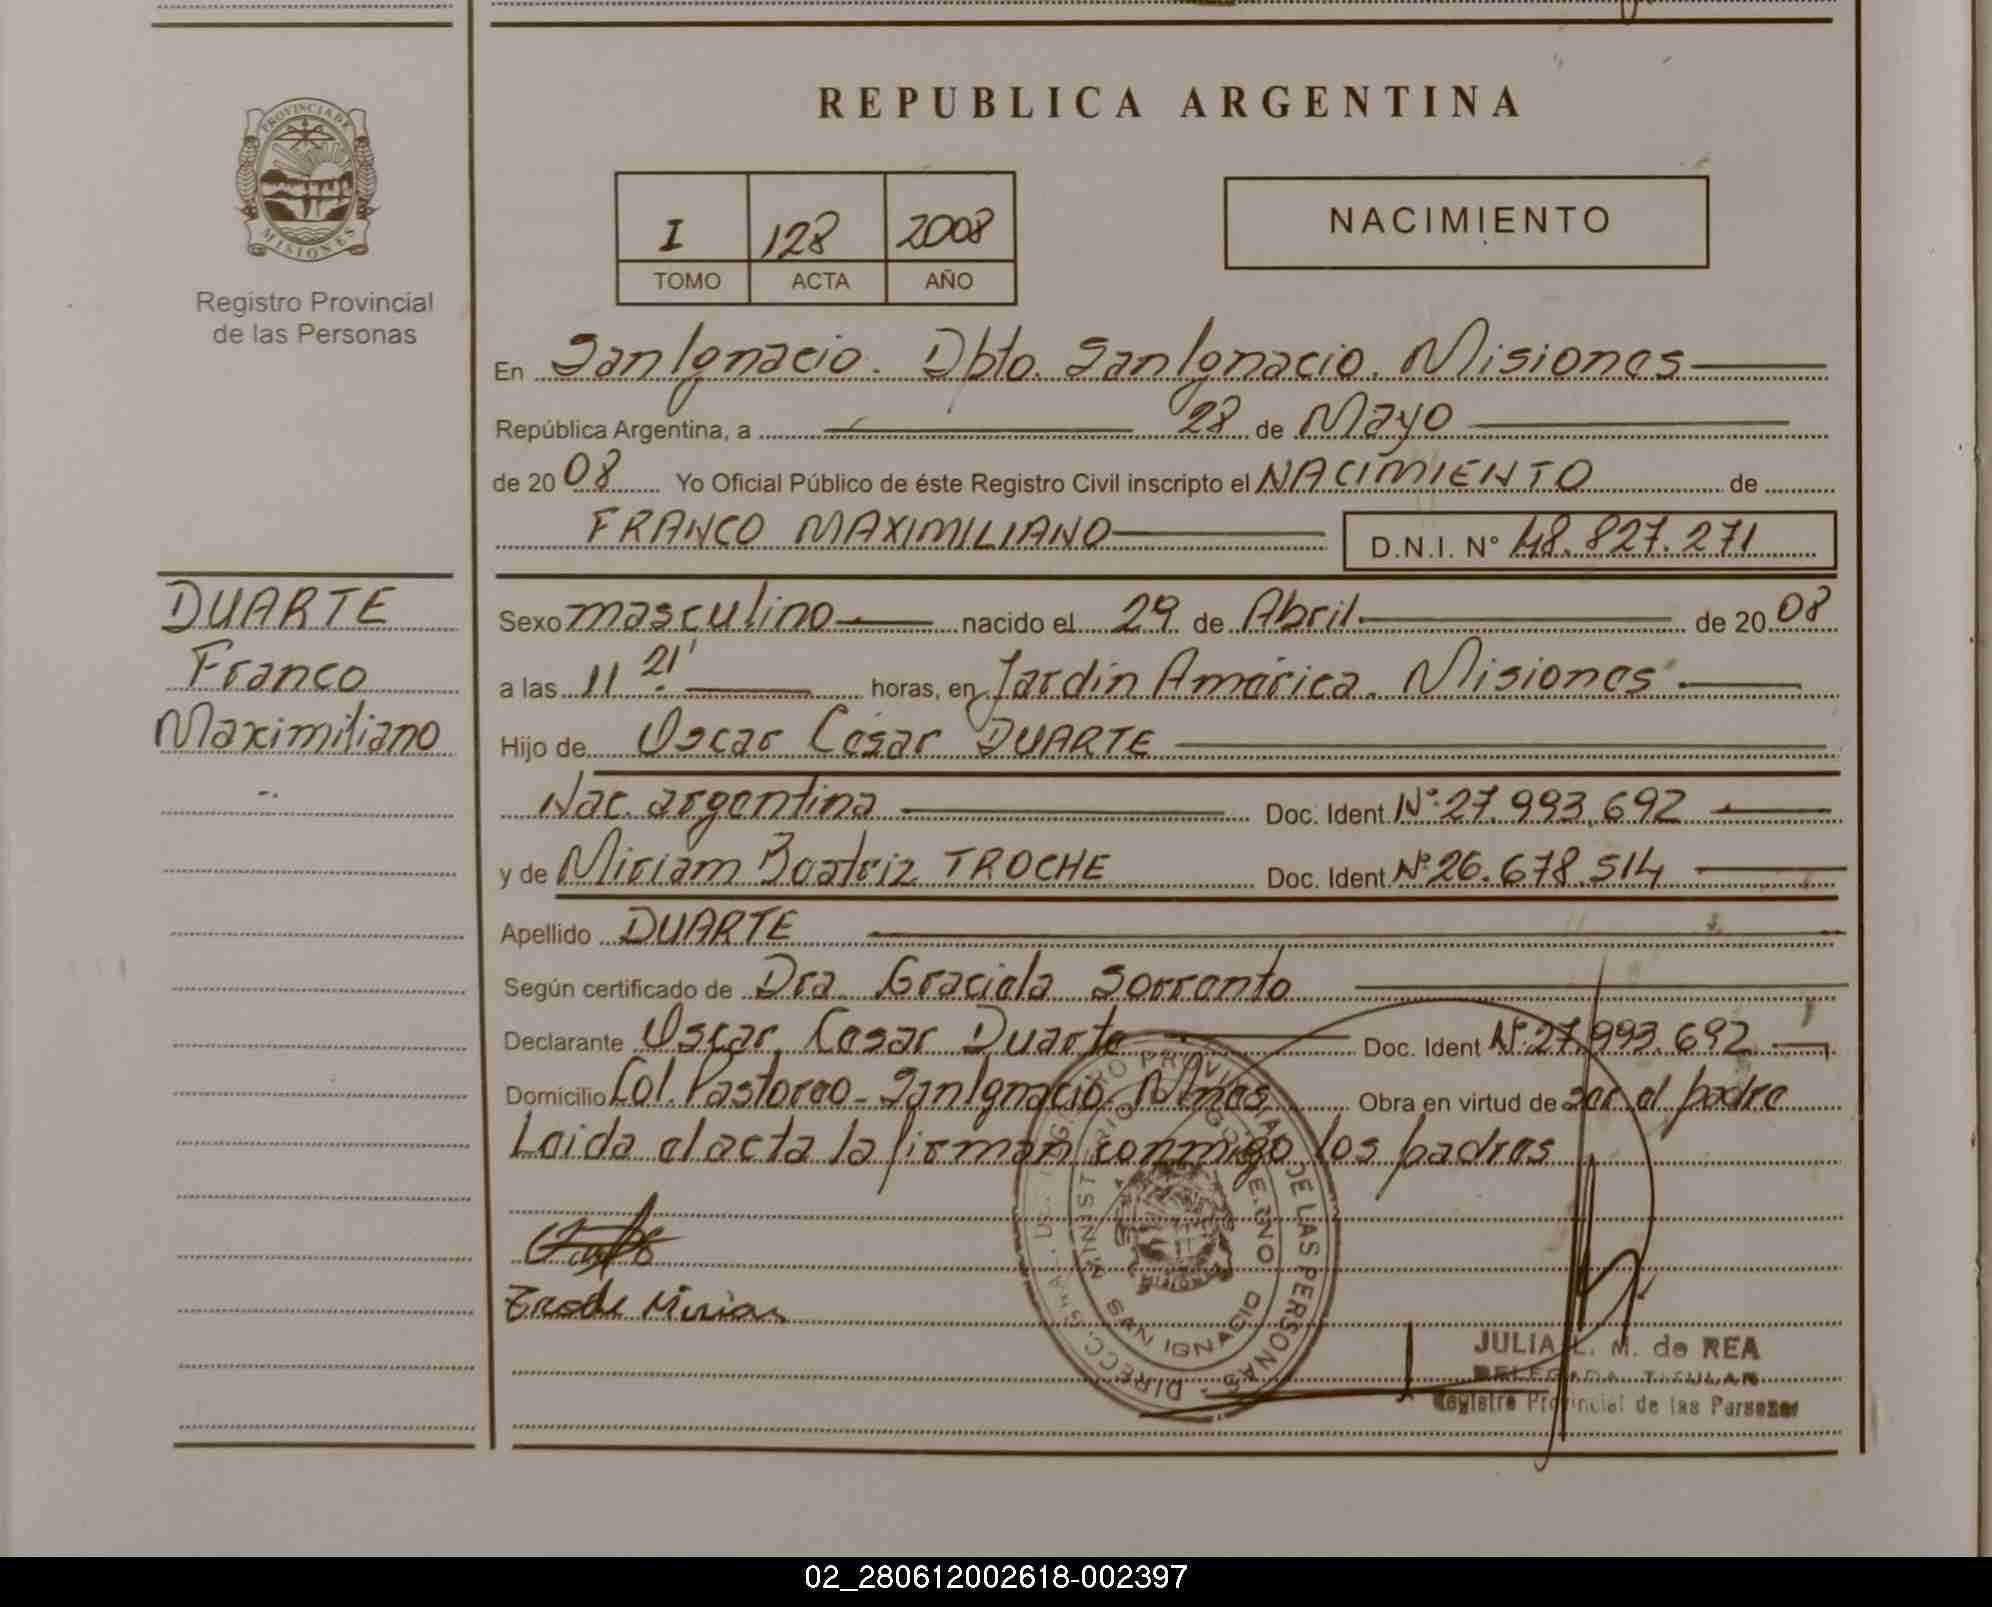 PROVINCIA DE
MISIONES
Registro Provincial
de las Personas
DUARTE
Franco
Maximiliano
REPUBLICA ARGENTINA
I 128 2008
TOMO ACTA AÑO
NACIMIENTO
En San Ignacio. Dpto. San Ignacio. Misiones
República Argentina, a 28 de Mayo
de 20 08 Yo Oficial Público de éste Registro Civil inscripto el NACIMIENTO de
FRANCO MAXIMILIANO D.N.I. N° 48.827.271
Sexo masculino nacido el 29 de Abril de 20 08
a las 11 21' horas, en Jardín América. Misiones
Hijo de Oscar César DUARTE
Nac. argentina Doc. Ident N°: 27.993.692
y de Miriam Beatriz TROCHE Doc. Ident N° 26.678.514
Apellido DUARTE
Según certificado de Dra Graciela Sorrento
Declarante Oscar Cesar Duarte Doc. Ident N°: 27.993.692
Domicilio Col. Pastoreo - San Ignacio. Mnes. Obra en virtud de ser el padre
Leida el acta la firman conmigo los padres
Troche Mirian
DIRECC. GRAL. REGISTRO PROVINCIAL DE LAS PERSONAS
MINISTERIO GOBIERNO
SAN IGNACIO
JULIA L. M. de REA
DELEGADA TITULAR
Registro Provincial de las Personas
02_280612002618-002397